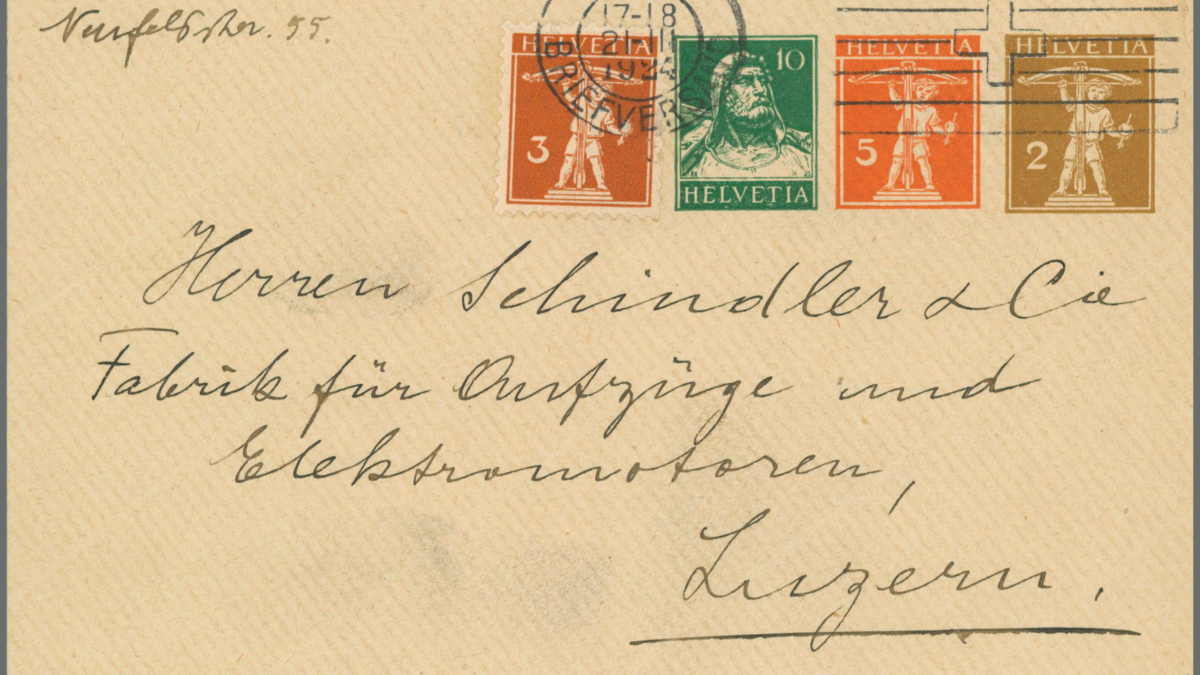 Neufeldstr. 55.
17-18
21-III
1924
BRIEFVERSAND
HELVETIA
3
10
HELVETIA
HELVETIA
5
HELVETIA
2
Herren Schindler & Cie
Fabrik für Aufzüge und
Elektromotoren,
Luzern.